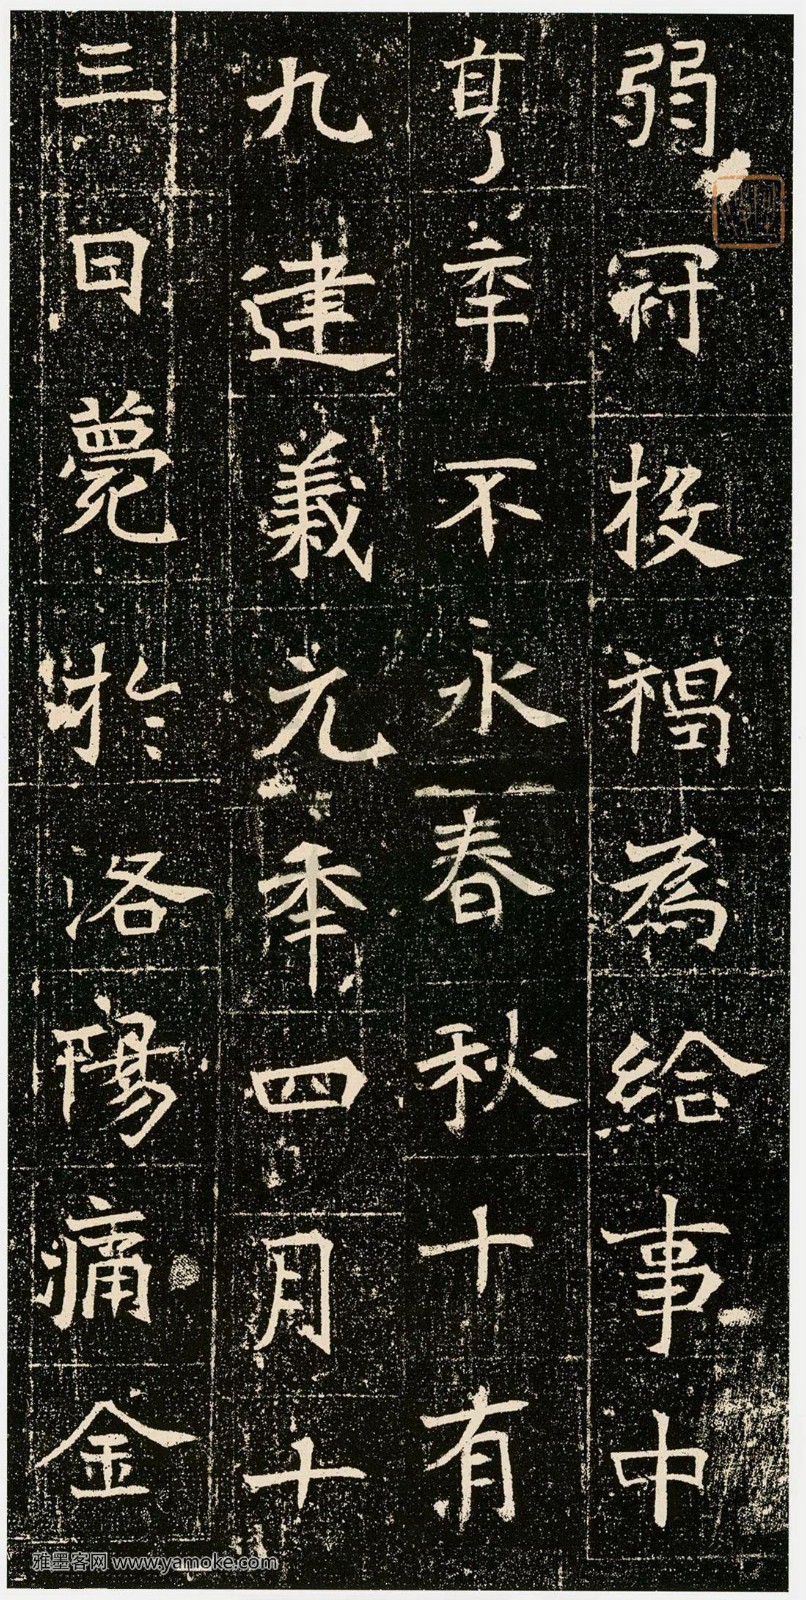 弱冠投褐為給事中
享年不永春秋十有
九建義元年四月十
三日薨於洛陽痛金
雅墨客网 www.yamoke.com